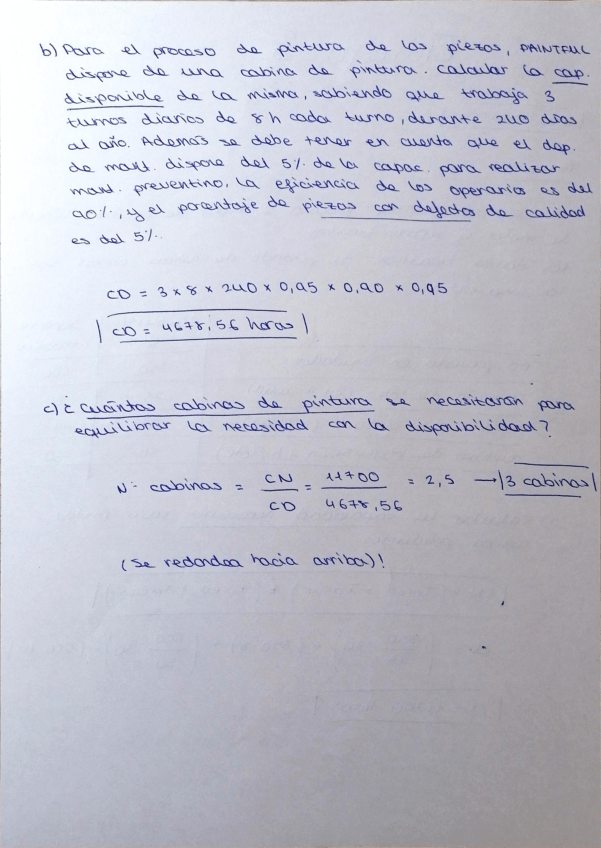 b) Para el proceso de pintura de las piezas, PAINTFUL
dispone de una cabina de pintura. Calcular la cap.
disponible de la misma, sabiendo que trabaja 3
turnos diarios de 8 h cada turno, durante 240 días
al año. Además se debe tener en cuenta que el dep.
de mant. dispone del 5% de la capac. para realizar
mant. preventivo, la eficiencia de los operarios es del
90%, y el porcentaje de piezas con defectos de calidad
es del 5%.
CD = 3 x 8 x 240 x 0,95 x 0,90 x 0,95
CD = 4678,56 horas
c) ¿Cuántas cabinas de pintura se necesitarán para
equilibrar la necesidad con la disponibilidad?
Nº cabinas = CN / CD = 11700 / 4678,56 = 2,5 → 3 cabinas
(Se redondea hacia arriba)!